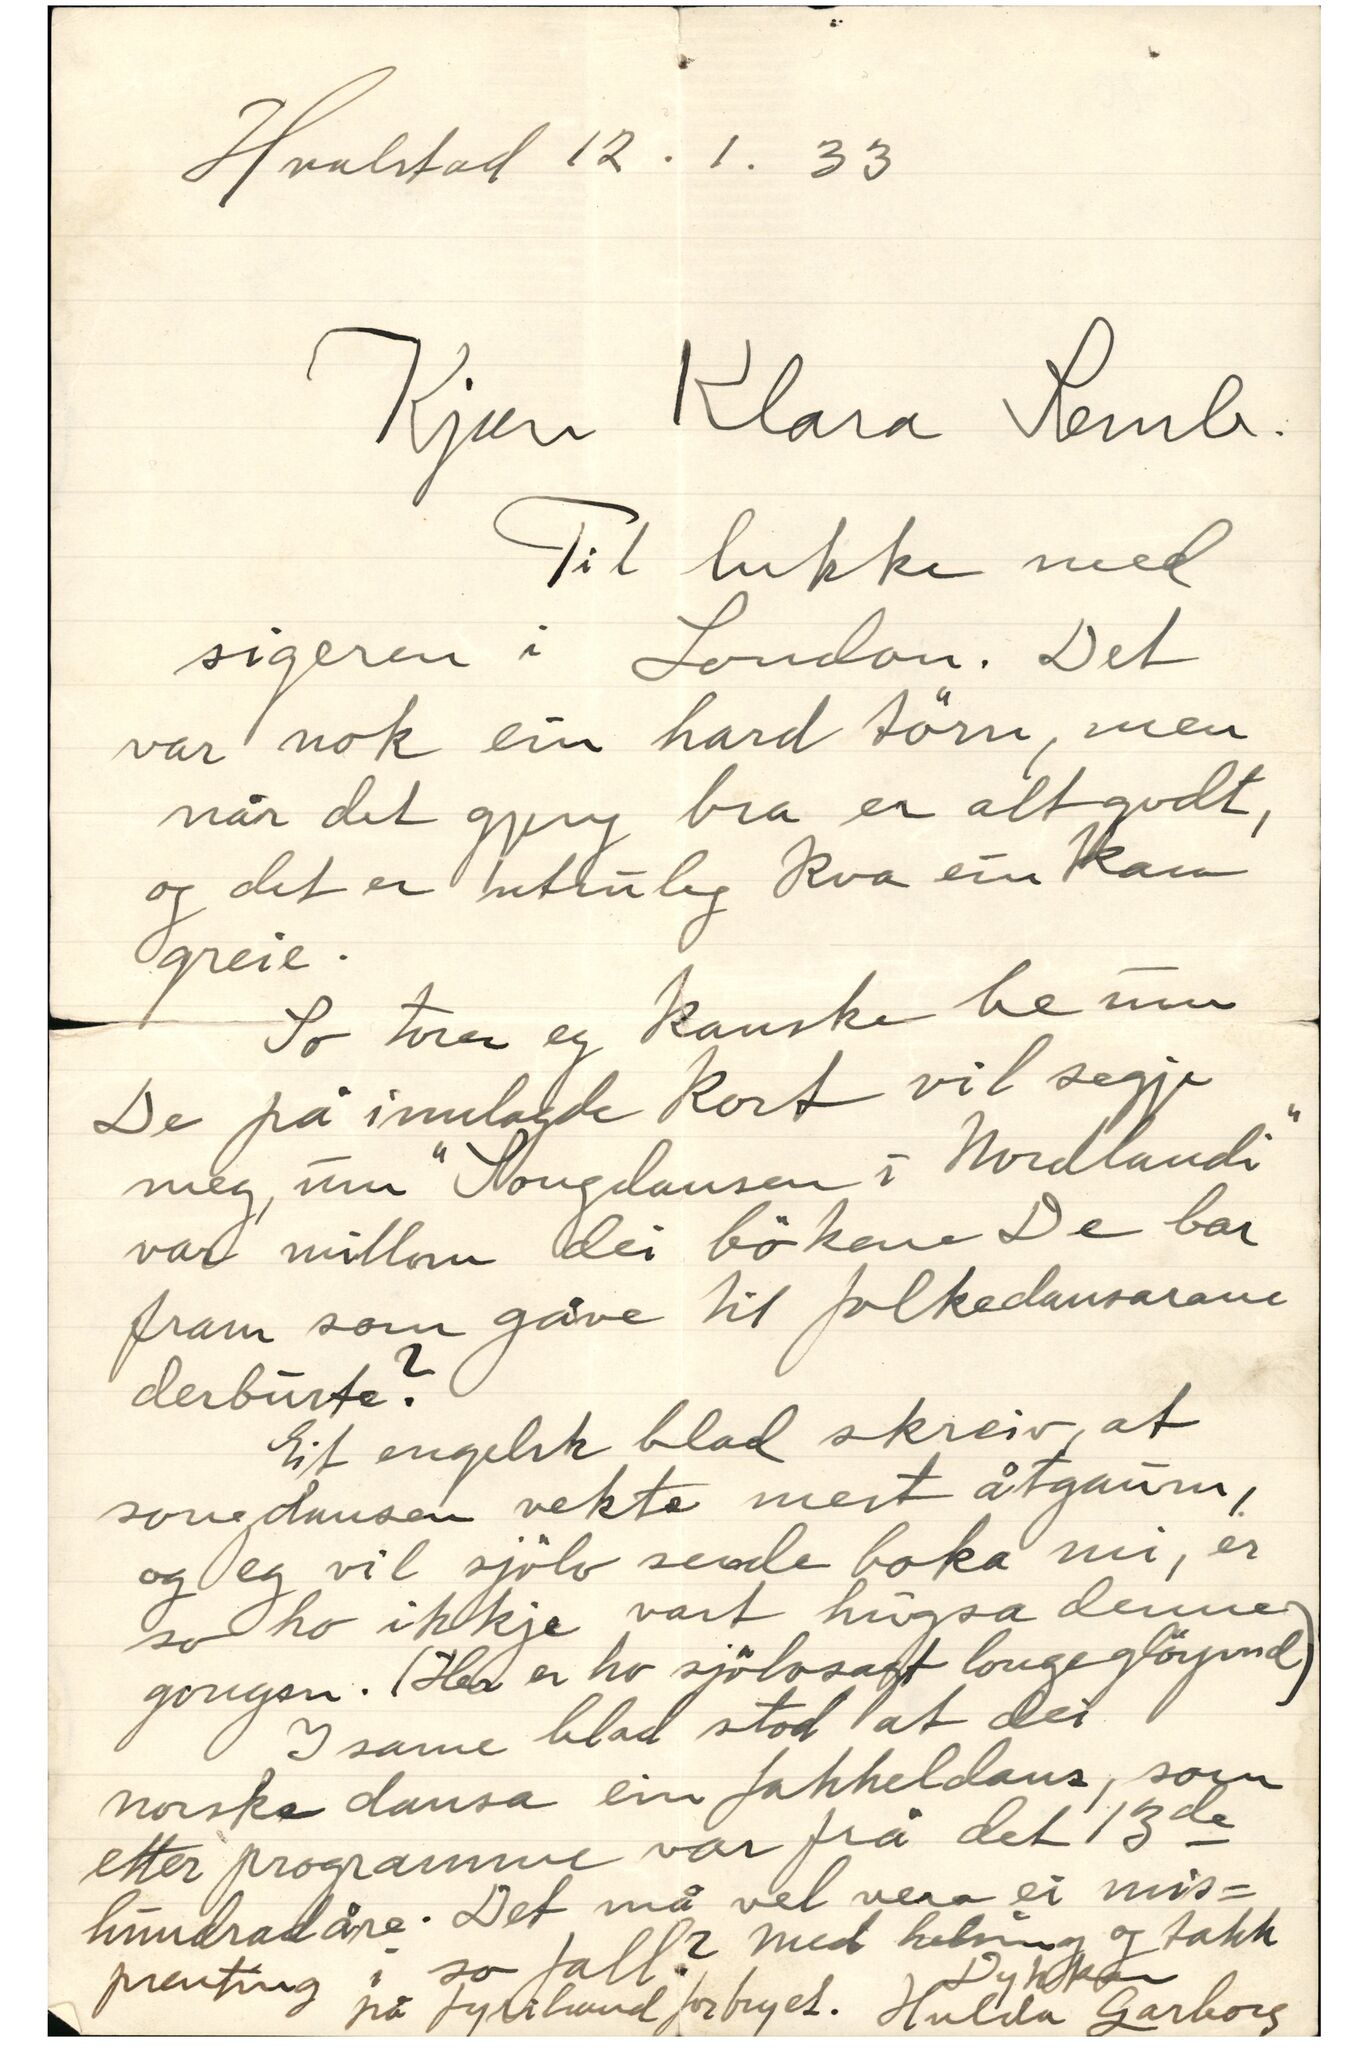 Hvalstad 12. 1. 33
Kjære Klara Semb.
Til lukke med
sigeren i London. Det
var nok ein hard törn, men
når det gjeng bra er alt godt,
og det er utruleg kva ein kann
greie.
So torer eg kanske be um
De på innlagde kort vil segje
meg, um "Songdansen i Nordlandi"
var millom dei bökene De bar
fram som gåve til folkedansarane
derburte?
Eit engelsk blad skreiv, at
songdansen vekte mest åtgaum,
og eg vil sjölv sende boka mi, er
so ho ikkje vart hugsa denne
gongen. (Her er ho sjölvsagt longe glöymd)
I same blad stod at dei
norske dansa ein fakkeldans, som
etter programme var frå det 13de
hundradåre. Det må vel vera ei mis=
prenting i so fall? Med helsing og takk
på fyrihand forbryet. Dykkar
Hulda Garborg